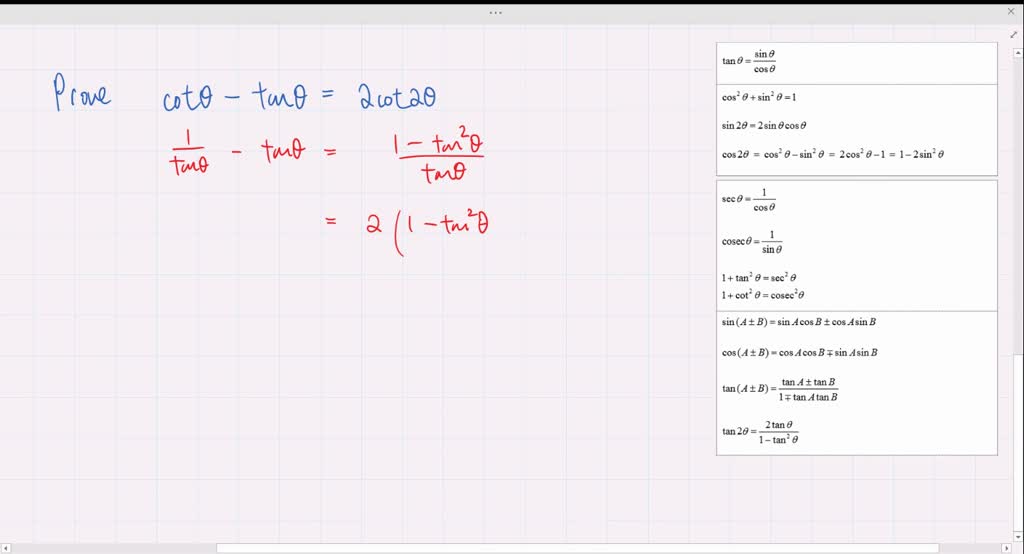 Prove cotθ − tanθ = 2cot2θ
1/tanθ − tanθ = (1 − tan²θ)/tanθ
= 2 (1 − tan²θ
tan θ = sin θ / cos θ
cos² θ + sin² θ = 1
sin 2θ = 2 sin θ cos θ
cos 2θ = cos² θ − sin² θ = 2 cos² θ − 1 = 1 − 2 sin² θ
sec θ = 1 / cos θ
cosec θ = 1 / sin θ
1 + tan² θ = sec² θ
1 + cot² θ = cosec² θ
sin (A ± B) = sin A cos B ± cos A sin B
cos (A ± B) = cos A cos B ∓ sin A sin B
tan (A ± B) = (tan A ± tan B) / (1 ∓ tan A tan B)
tan 2θ = 2 tan θ / (1 − tan² θ)